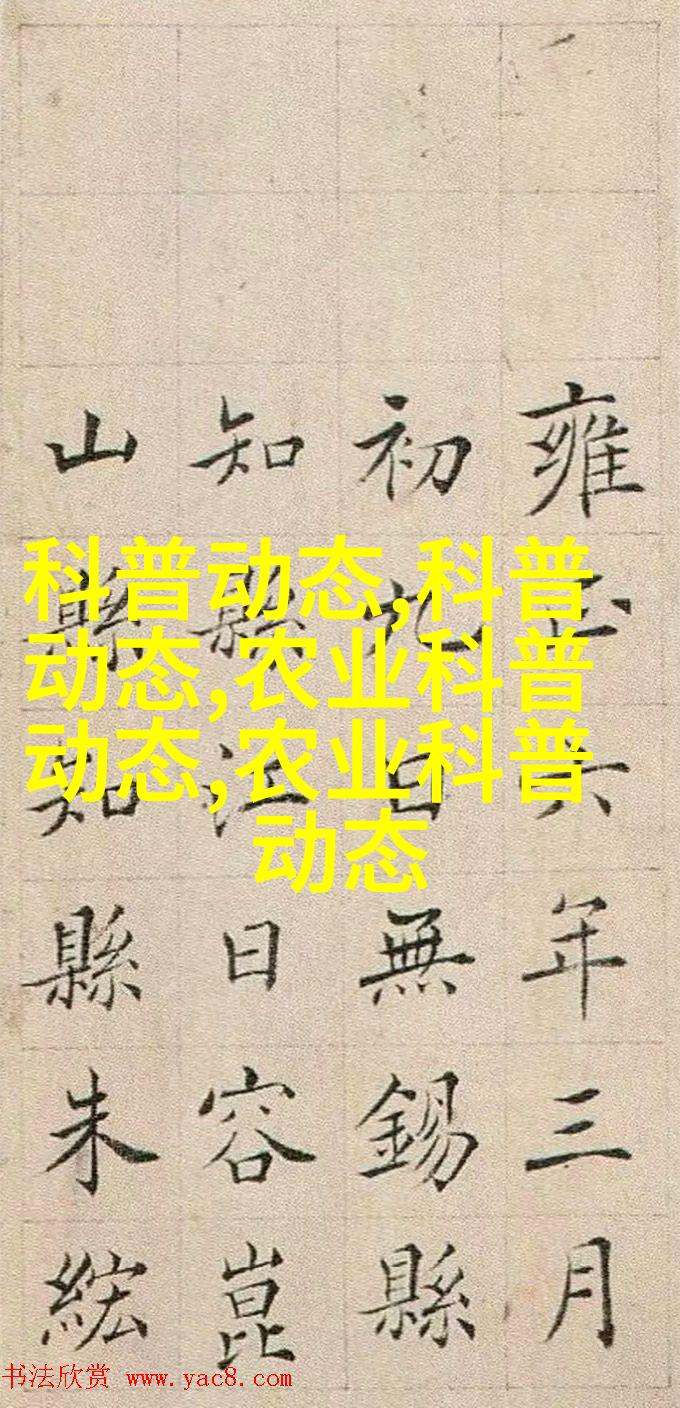 雍正六年三月
初九日無錫縣
知縣江日容崑
山縣知縣朱綋
科普动态,科普
动态,农业科普
动态,农业科普
动态
书法欣赏 www.yac8.com